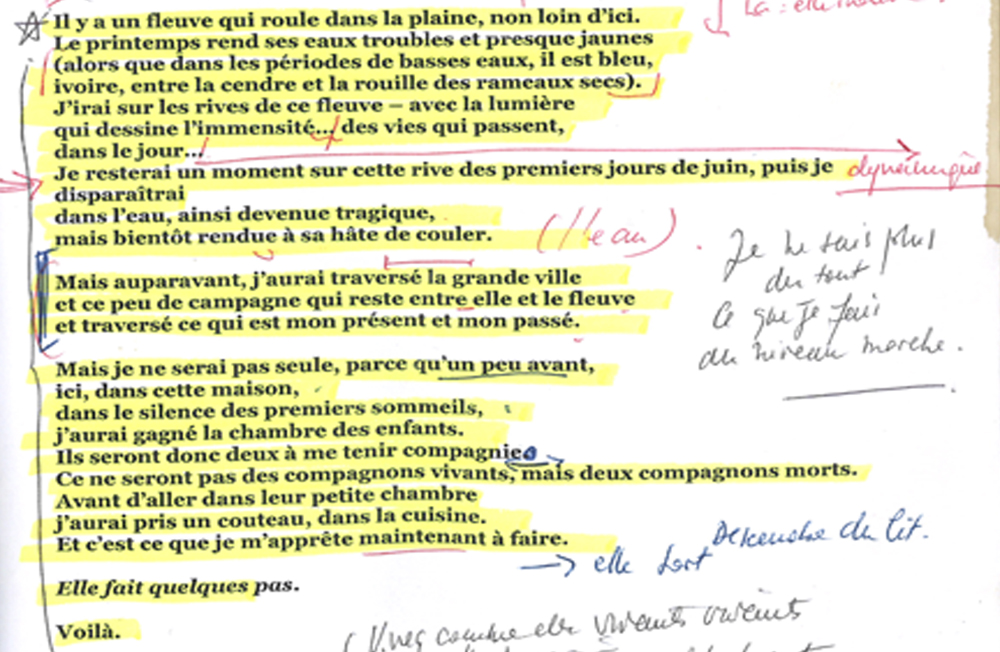 Il y a un fleuve qui roule dans la plaine, non loin d'ici.
Le printemps rend ses eaux troubles et presque jaunes
(alors que dans les périodes de basses eaux, il est bleu,
ivoire, entre la cendre et la rouille des rameaux secs).
J'irai sur les rives de ce fleuve – avec la lumière
qui dessine l'immensité... des vies qui passent,
dans le jour...
Je resterai un moment sur cette rive des premiers jours de juin, puis je
disparaîtrai
dans l'eau, ainsi devenue tragique,
mais bientôt rendue à sa hâte de couler.
(l'eau)
Je ne sais plus
du tout
ce que je fais
au niveau marche.
Mais auparavant, j'aurai traversé la grande ville
et ce peu de campagne qui reste entre elle et le fleuve
et traversé ce qui est mon présent et mon passé.
Mais je ne serai pas seule, parce qu'un peu avant,
ici, dans cette maison,
dans le silence des premiers sommeils,
j'aurai gagné la chambre des enfants.
Ils seront donc deux à me tenir compagnie
Ce ne seront pas des compagnons vivants, mais deux compagnons morts.
Avant d'aller dans leur petite chambre
j'aurai pris un couteau, dans la cuisine.
Et c'est ce que je m'apprête maintenant à faire.
→ elle sort
du lit.
Elle fait quelques pas.
Voilà.